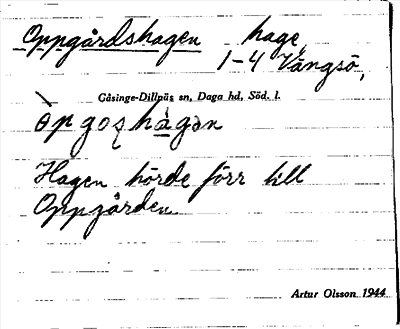 Oppgårdshagen hage,
1-4 Vängsö,
Gåsinge-Dillnäs sn, Daga hd, Söd. l.
Hagen hörde förr till
Oppgården.
Artur Olsson 1944